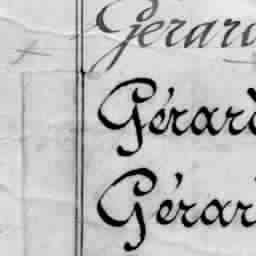 Gerard
Gérard
Gérar